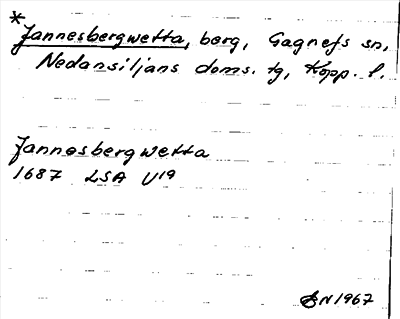 *
Jannesbergwetta, berg, Gagnefs sn,
Nedansiljans doms. tg, Kopp. l.
Jannesbergwetta
1687 LSA U19
SN 1967